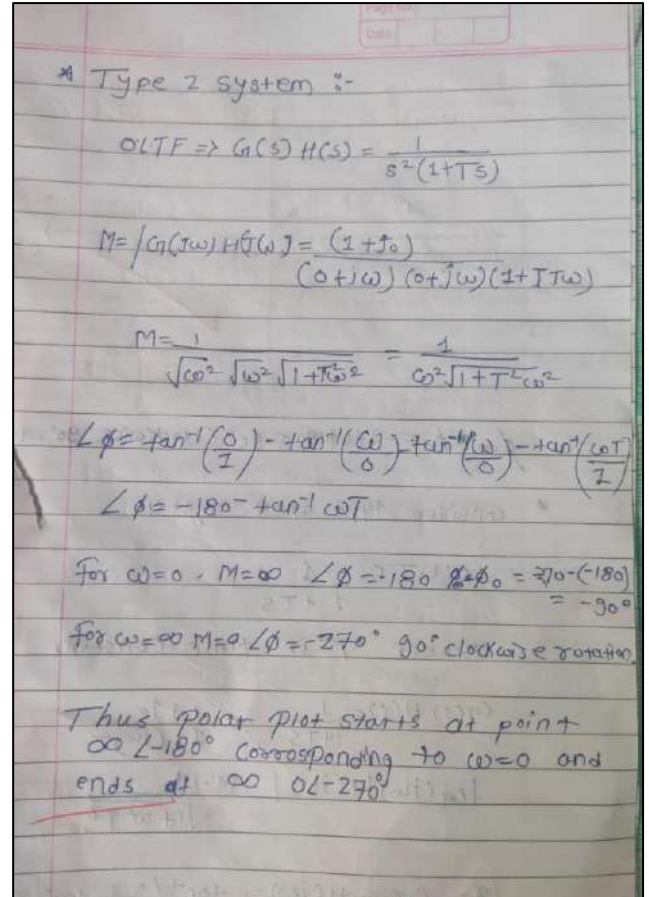 Page No.
Date
* Type 2 system :-
OLTF => G(s) H(s) = 1 / s²(1+Ts)
M= |G(jω) H(jω) = (1+j0) / (0+jω) (0+jω)(1+TJω)
M= 1 / √ω² √ω² √1+T²ω² = 1 / ω²√1+T²ω²
∠ϕ= tan⁻¹(0/1) - tan⁻¹(ω/0) - tan⁻¹(ω/0) - tan⁻¹(ωT/1)
∠ϕ= -180 - tan⁻¹ ωT
For ω=0 . M=∞ ∠ϕ = -180 = 270-(-180)
= -90°
For ω=∞ M=0 ∠ϕ=-270° 90° clockwise rotation.
Thus polar plot starts at point
∞ ∠-180° corrosponding to ω=0 and
ends at ∞ 0∠-270°